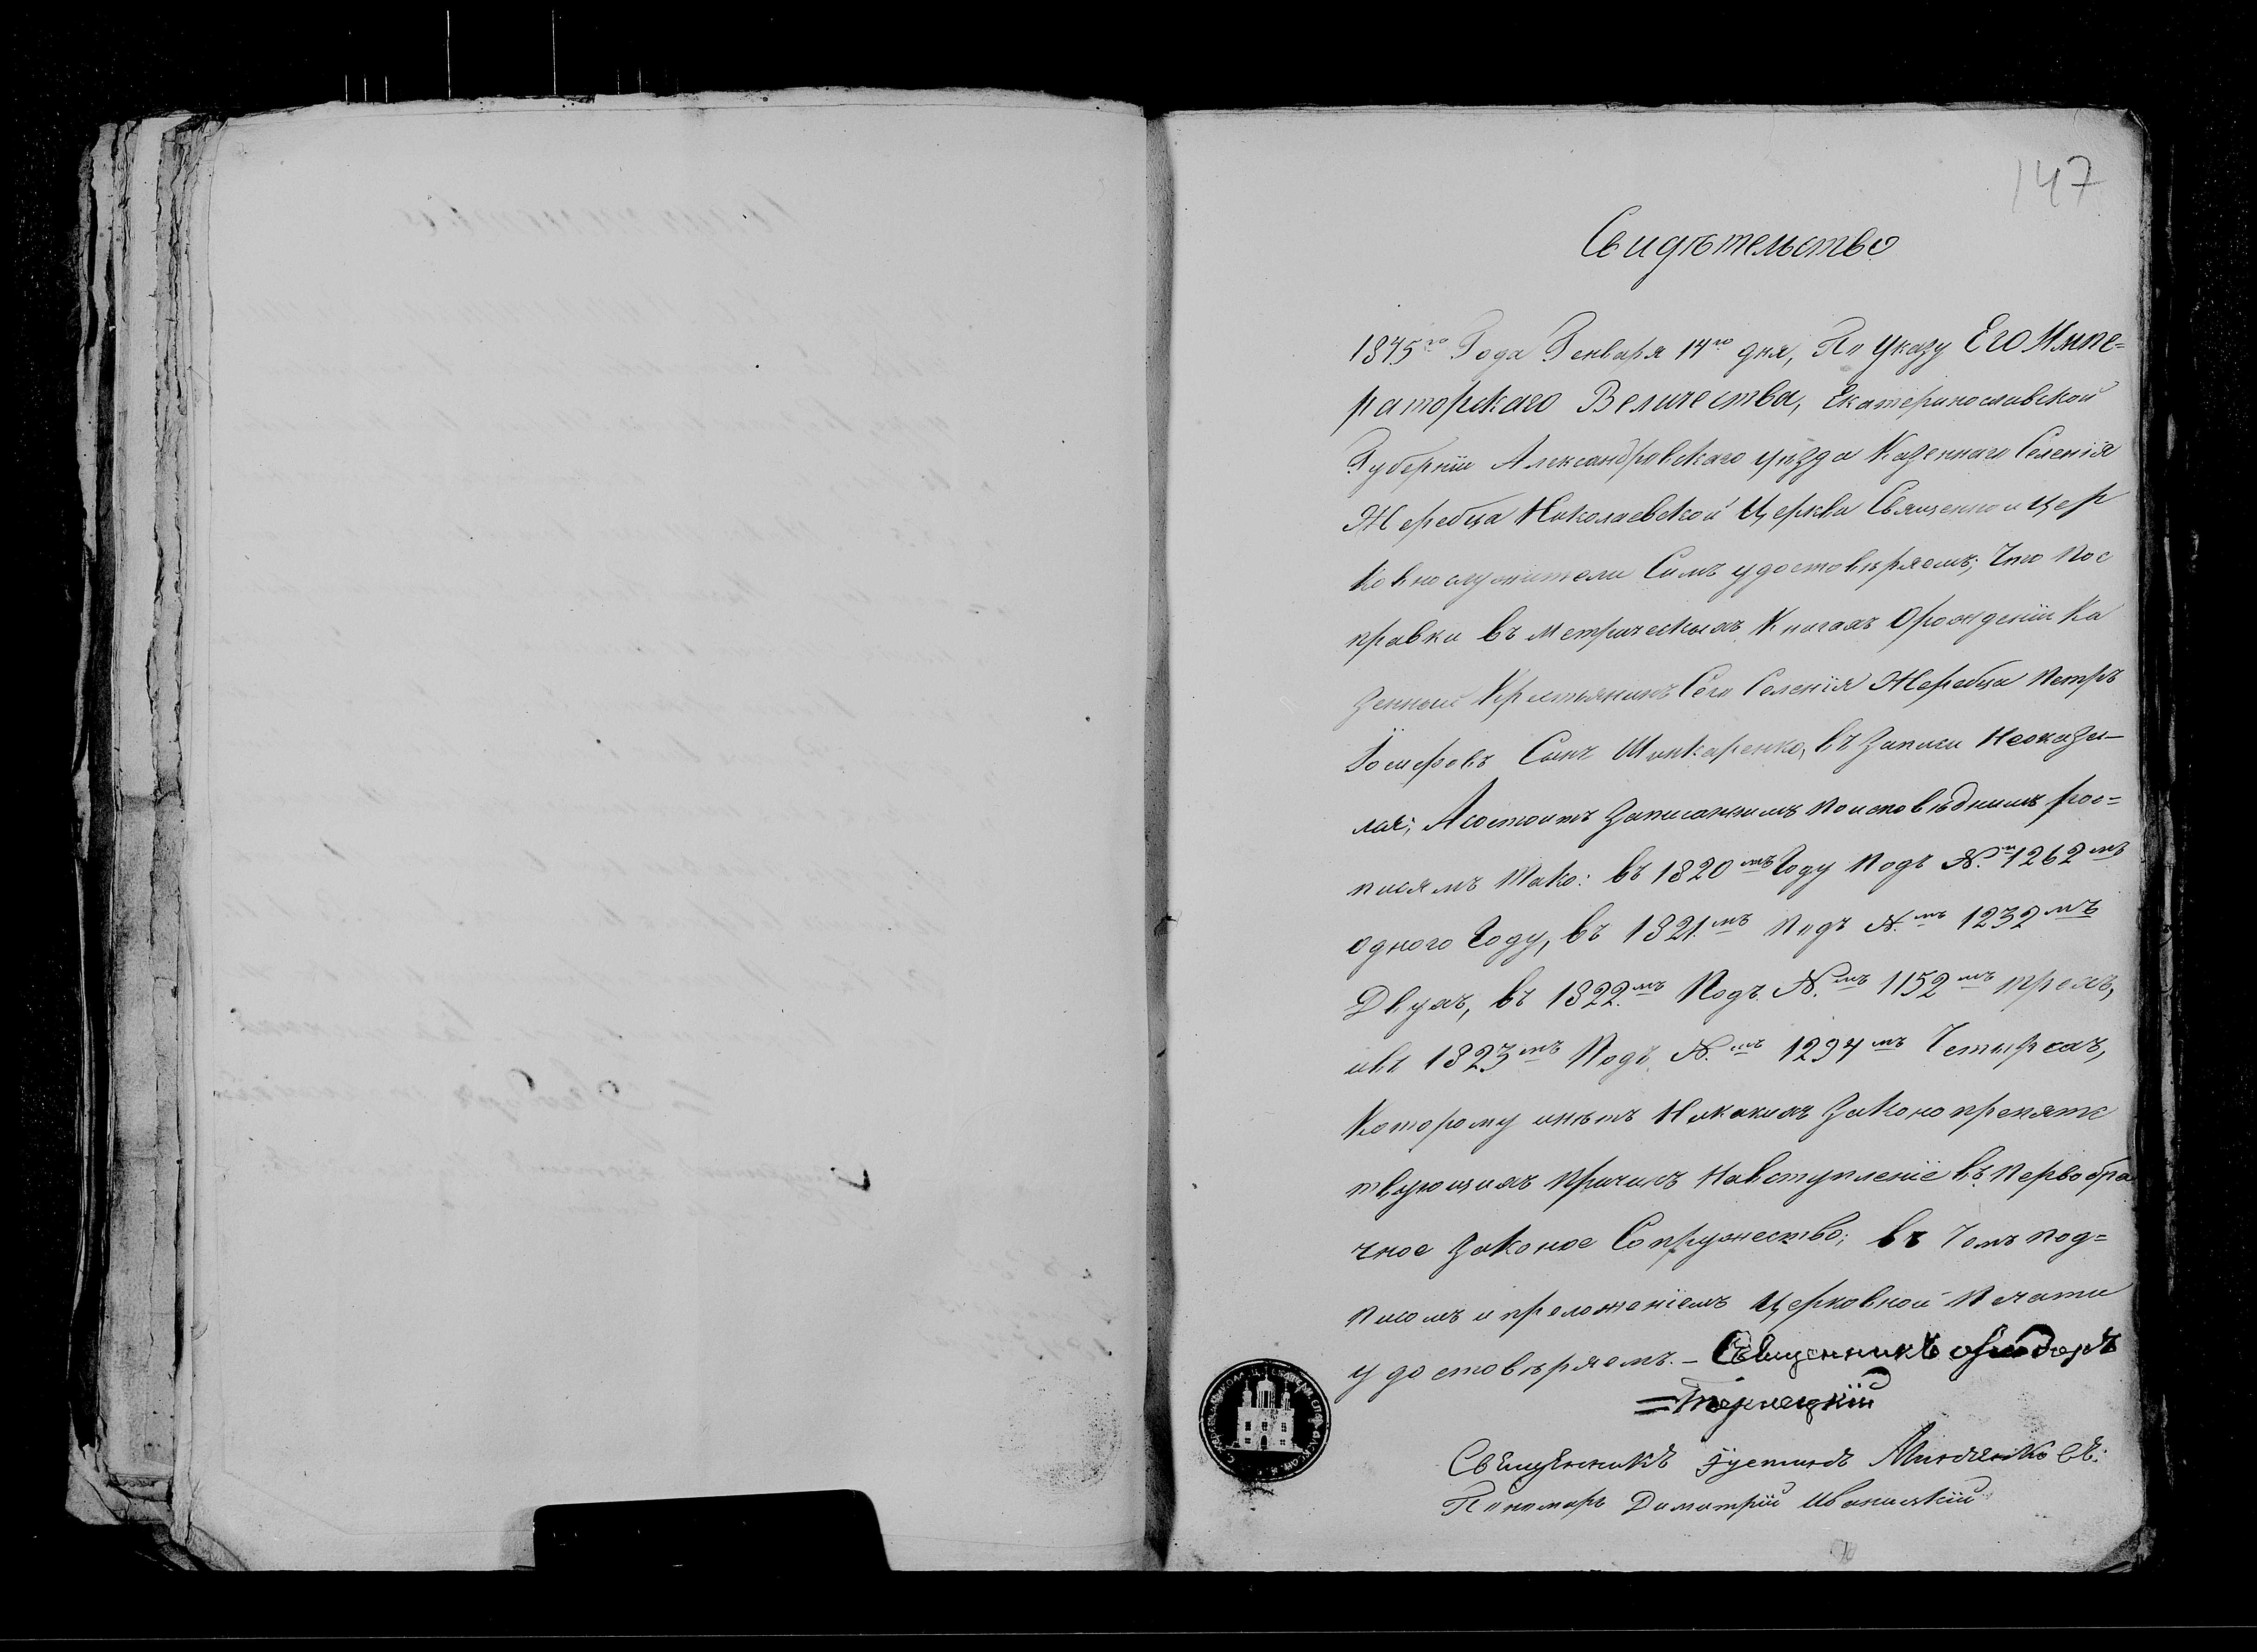 147
Свидѣтельство
1845го Года Генваря 14го дня, По Указу Его Импе=
раторскаго Величества, Екатеринославской
Губернїи Александровскаго уѣзда Казеннаго Селенїя
Жеребца Николаевской Церкви Священно и Цер
ковно служители Симъ удостовѣряемъ; Что пос
правки въ метрическихъ Книгахъ Орожденїи Ка
зенный Крестьянинъ Сего Селенїя Жеребца Петръ
Сынъ Шинкаренко, въ Записи Неоказа-
лся; Асостоитъ Записаннымъ поисповѣднымъ рос=
писямъ тако: въ 1820мъ Году подъ №мъ 1262мъ
одного Году, въ 1821мъ подъ №мъ 1232мъ
Двухъ, въ 1822мъ Подъ №мъ 1152мъ трехъ,
ивъ 1823мъ Подъ №мъ 1294мъ Четырехъ,
Которому инѣтъ Никакихъ Законопрепятс
твующихъ причинъ Навступленїе въ Первобра
чное Законое Сопружество; въ Чемъ под=
писомъ и преложенїемъ Церковной Печати
удостовѣряемъ. - Священникъ Ѳеодоръ
=Тернецкїй
Священникъ Густинъ
Пономарь Димитрїй Иваницкїй